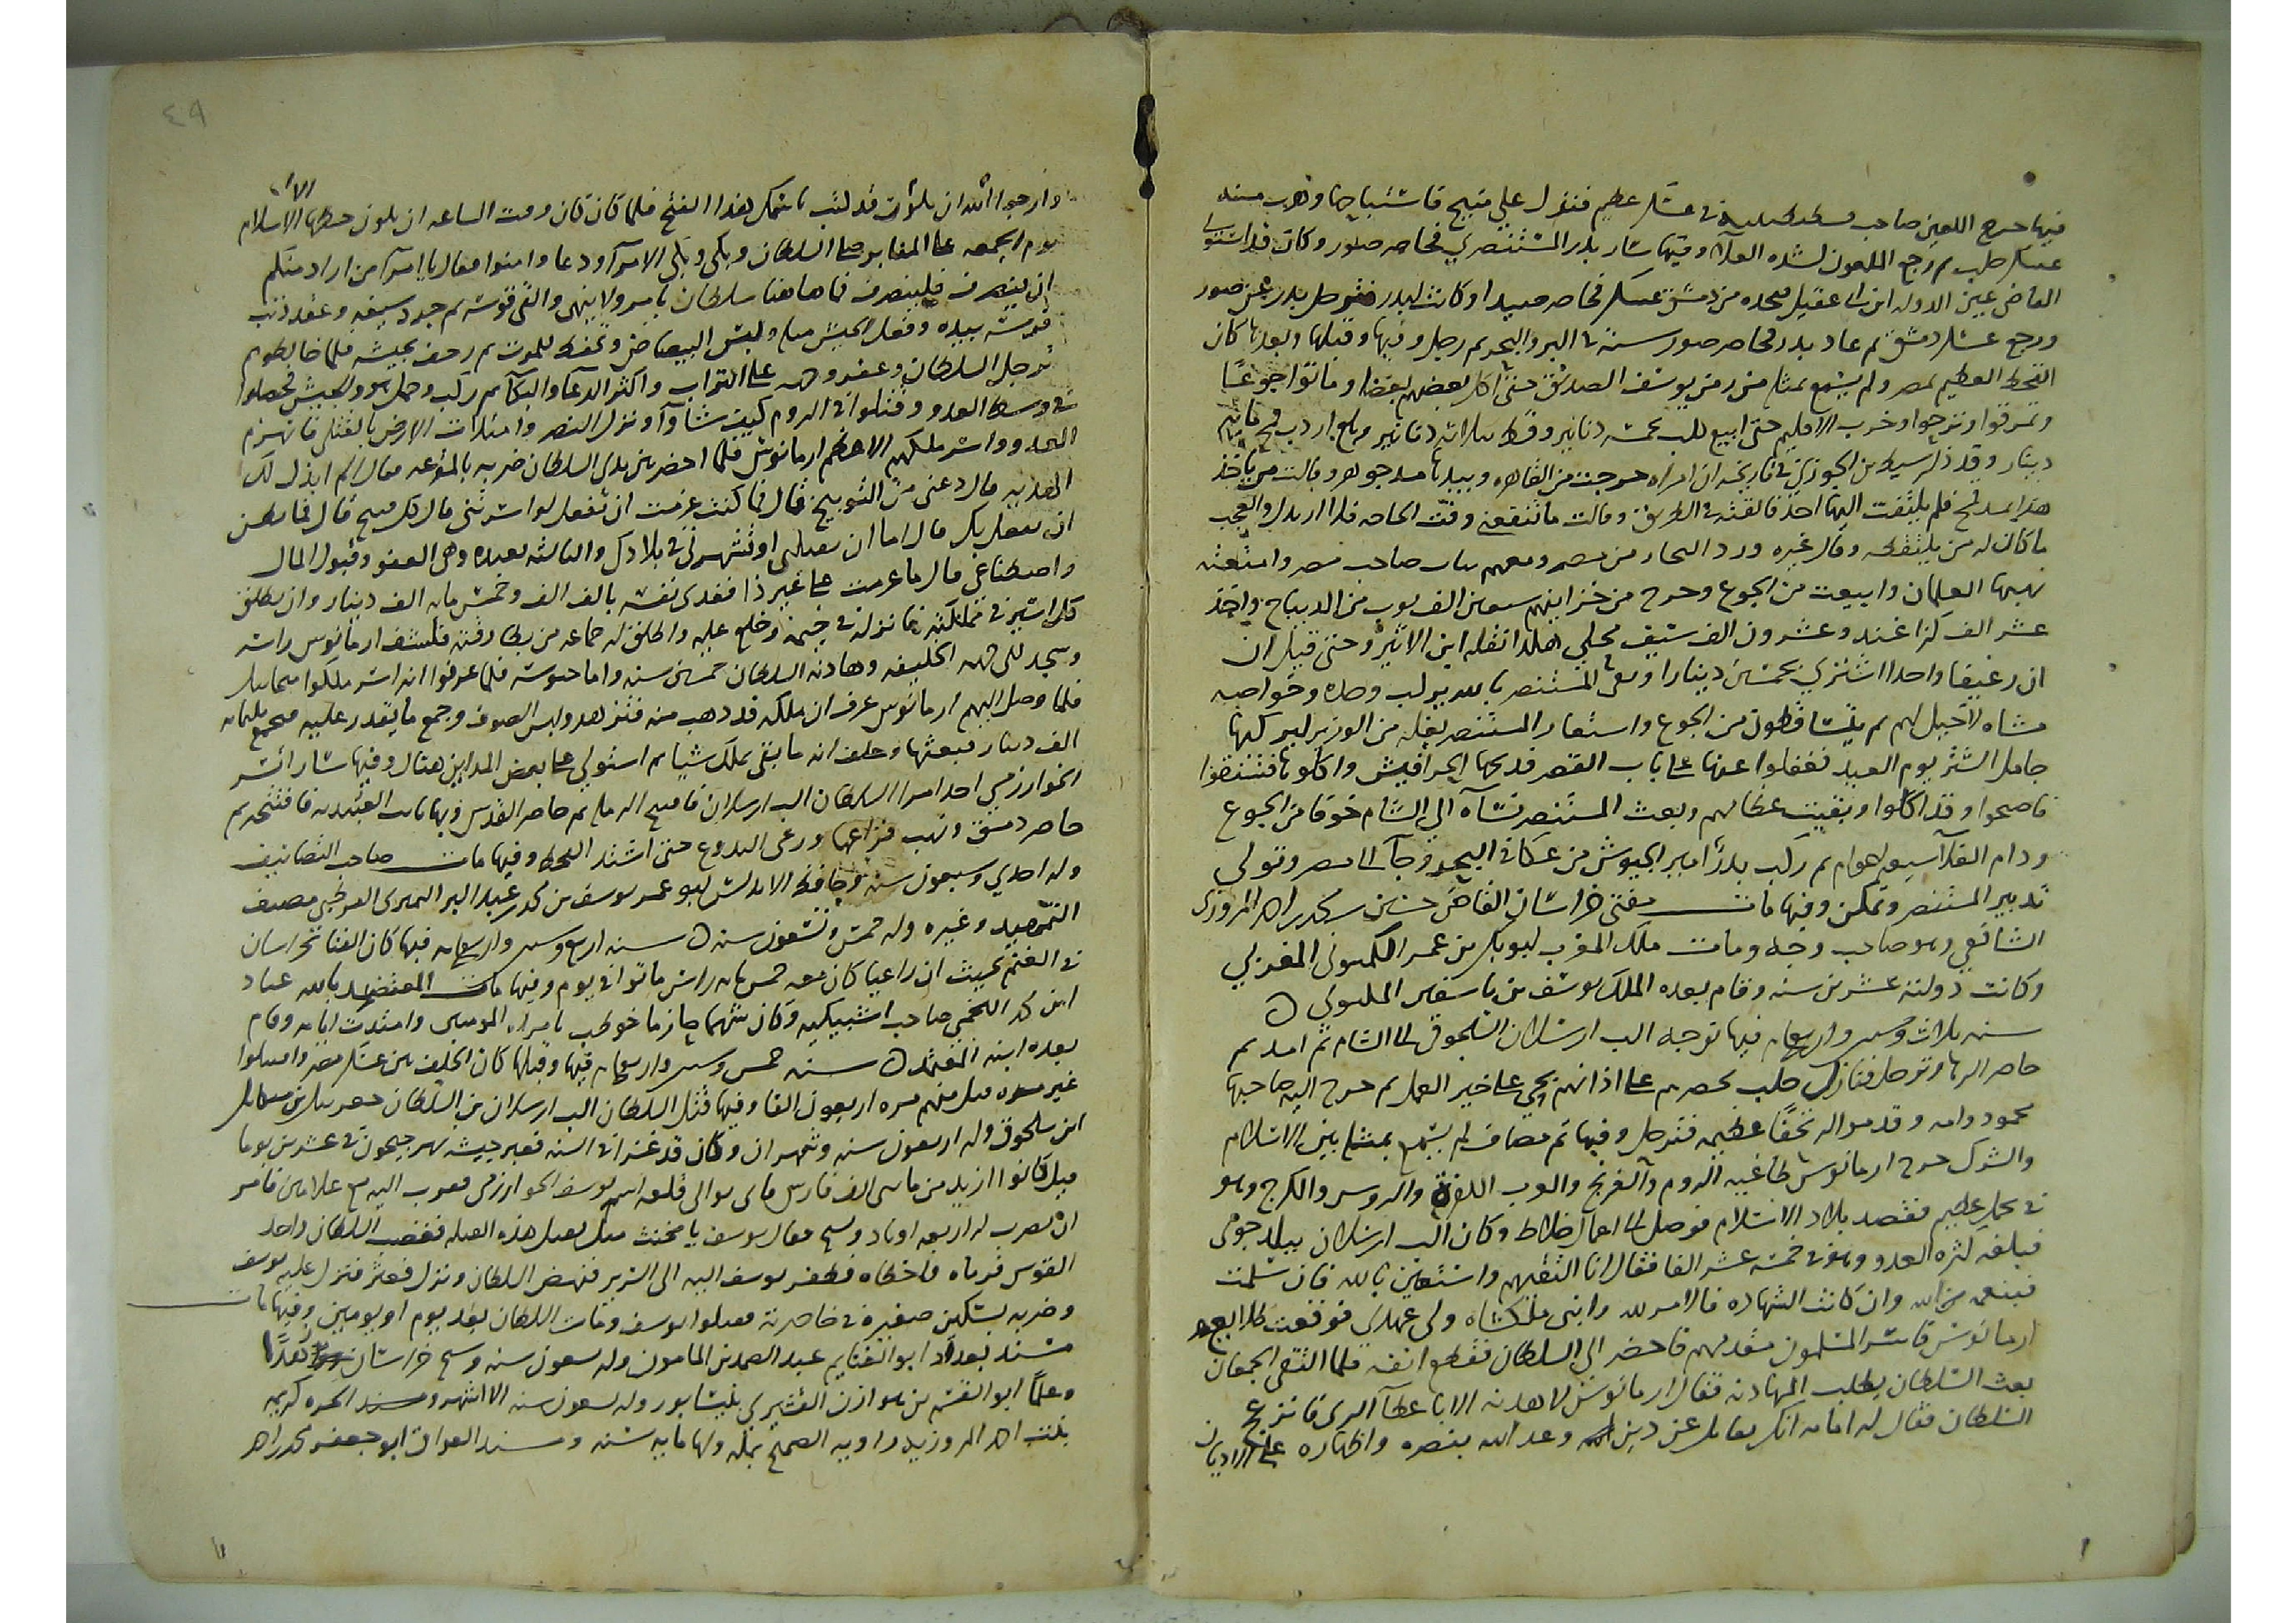 فيها خرج اللعين صاحب قسطنطينية في عسكر عظيم فنزل على منبج فاستباحها وهرب منه
عسكر حلب ثم رجع الملعون لشدة الغلاء وفيها سار بدر المستنصري فحاصر صور وكان قد استولى
القاضي عين الدولة ابن ابي عقيل من دمشق عسكر فحاصر صيدا وكانت لبدر فترحل بدر عن صور
ورجع عسكر دمشق ثم عاد بدر فحاصر صور سنة في البر والبحر ثم رحل وفيها وقبلها وبعدها كان
القحط العظيم بمصر ولم يسمع بمثله من زمن يوسف الصديق حتى اكل بعضهم بعضا وماتوا جوعا
وتمزقوا ونزحوا وخرب الاقليم حتى ابيع كلب بخمسة دنانير وقط بثلاثة دنانير وبلغ اردب قمح مائة
دينار وقد ذكر سبط بن الجوزي في تاريخه ان امراة خرجت من القاهرة وبيدها مد جوهر وقالت من ياخذ
هذا بمد قمح فلم يلتفت اليها احد فالقته في الطريق وقالت ما تنفعني وقت الحاجة فلا اريدك والعجب
ما كان له من يلتقطه وقال غيره ورد التجار من مصر ومعهم ثياب صاحب مصر وامتعته
نهبها الغلمان وابيعت من الجوع وخرج من خزاينهم سبعين الف ثوب من الديباج واحد
عشر الف كزاغند وعشرون الف سيف محلي هكذا نقله ابن الاثير وحتى قيل ان
ان رغيفا واحدا اشتري بخمسين دينارا وبقي المستنصر بالله يركب وحده وخواصه
مشاه لا خيل لهم ثم يتساقطون من الجوع واستعار المستنصر بغلة من الوزير ليركبها
حامل الستر يوم العيد فغفلوا عنها على باب القصر فذبحها الحرافيش واكلوها فشنقوا
فاصبحوا وقد اكلوا وبقيت عظامهم وبعث المستنصر نساه الى الشام خوفا من الجوع
ودام الغلاء سبعه اعوام ثم ركب بدر امير الجيوش من عكا في البحر وجا الى مصر وتولى
تدبير المستنصر وتمكن وفيها مات مفتي خراسان القاضي حسين بن محمد بن احمد المروزي
الشافعي وهو صاحب وجه ومات ملك المغرب ابو بكر بن عمر اللمتوني المغربي
وكانت دولته عشرين سنة وقام بعده الملك يوسف بن تاشفين الملثوني
سنة ثلاث وستين واربعمايه فيها توجه الب ارسلان السلجوقي الى الشام ثم امد ثم
حاصر الرها وترحل فنازل حلب بحصرهم على اذانهم بحي على خير العمل ثم خرج اليه صاحبها
محمود وامه وقدموا له تحفا عظيمه فترحل وفيها تم مصاف لم يسمع بمثله بين الاسلام
والشرك خرج ارمانوس طاغية الروم والفرنج والعرب الكفرة والروس والكرج وهو
في جمل عظيم فقصد بلاد الاسلام فوصل الى اعمال خلاط وكان الب ارسلان ببلد خوي
فبلغه كثرة العدو وهو في خمسة عشر الفا فقال انا التقيهم واستعين بالله فان سلمت
فبنعمة الله وان كانت الشهاده فالامر لله وابني ملكشاه ولي عهدي فوقعت طلايع
ارمانوس فاسر المسلمون مقدمهم فاحضر الى السلطان فقطع انفه فلما التقى الجمعان
بعث السلطان يطلب المهادنة فقال ارمانوس لا هدنة الا باعطا الري فانزعج
السلطان فقال له امامه انك تقاتل عن دين وعد الله بنصره واظهاره على الاديان
وارجوا الله ان يكون قد كتب باسمك هذا الفتح فلما كان وقت الساعة ان يكون خطبا الاسلام الان
يوم الجمعة على المنابر صلى السلطان وبكى وبكى الامرا ودعا وامنوا فقال يا امرا من اراد منكم
ان ينصرف فلينصرف فما هاهنا سلطان يامر ولا ينهى والقى قوسه ثم جرد سيفه وعقد ذنب
فرسه بيده وفعل الجيش مثله ولبس البياض وتحنط للموت ثم زحف بجيشه فلما خالطوهم
ترجل السلطان وعفر وجهه على التراب واكثر الدعا والبكا ثم ركب وحمل هو والجيش فحصلوا
في وسط العدو وقتلوا في الروم كيف شاؤا ونزل النصر وامتلات الارض بالقتلى فانهزم
العدو واسر ملكهم الاعظم ارمانوس فلما احضر بين يدي السلطان ضربه بالمقرعة فقال الم ابذل لك
الهدنه قال دعني من التوبيخ قال فما كنت عزمت ان تفعل لو اسرتني قال كل قبيح قال فما تظن
ان نفعل بك قال اما ان تقتلني او تشهرني في بلادك والثالثة بعيده وهي العفو وقبول المال
واصطناعي قال ما عزمت على غير ذا ففدى نفسه بالف الف وخمس ماية الف دينار وان يطلق
كل اسير في مملكته فانزله في خيمة وخلع عليه واطلق له جماعة من بطارقته فكشف ارمانوس راسه
وسجد الى جهة الخليفة وهادنه السلطان خمسين سنة واما جيوشه فلما عرفوا انه اسر ملكوا ميخاييل
فلما وصل اليهم ارمانوس عرف ان ملكه قد ذهب منه فتزهد ولبس الصوف وجمع ما يقدر عليه فجمع ثلثمايه
الف دينار فبعثها وحلف انه ما بقي يملك شيا ثم استولى على بعض المداين هناك وفيها سار اتسز
الخوارزمي احد امرا السلطان الب ارسلان فافتتح الرملة ثم حاصر القدس وبها نايب العبيديه فافتتحه ثم
حاصر دمشق ونهب مزارعها ورعى الزروع حتى اشتد القحط وفيها مات صاحب التصانيف
وله احدى وسبعون سنة وحافظ الاندلس ابو عمر يوسف بن عبد البر النمري القرطبي مصنف
التمهيد وغيره وله خمس وتسعون سنة سنة اربع وستين واربعمايه فيها كان الفنا بخراسان
في الغنم بحيث ان راعيا كان معه خمس ماية راس ماتوا في يوم وفيها مات المعتضد بالله عباد
ابن محمد اللخمي صاحب اشبيلية وكان شهما حازما خوطب بامير المومنين وامتدت ايامه وقام
بعده ابنه المعتمد سنة خمس وستين واربعمايه فيها وقبلها كان الخلف بين عسكر مصر واقتتلوا
غير مره قتل منهم مره اربعون الفا وفيها قتل السلطان الب ارسلان بن السلطان جغر بيك بن ميكاييل
ابن سلجوق وله اربعون سنة وشهران وكان قد غزا في السنة فعبر جيشه نهر جيحون في عشرين يوما
قيل كانوا ازيد من مايتي الف فارس فاتي بوالي قلعة اسمه يوسف الخوارزمي فقرب اليه مع غلامين فامر
ان يضرب له اربعه اوتاد ويشبح فقال يوسف يا مخنث مثلي يقتل هذه القتله فغضب السلطان واخذ
القوس فرماه فاخطاه فطفر يوسف اليه الى السرير فنهض السلطان ونزل فعثر فنزل عليه يوسف
وضربه بسكين صغيرة في خاصرته فقتلوا يوسف ومات السلطان بعد يوم او يومين وفيها مات
مسند بغداد ابو الغنايم عبد الصمد بن المامون وله تسعون سنة وشيخ خراسان زهدا
وعلما ابو القسم بن هوازن القشيري بنيسابور وله تسعون سنة الا اشهر ومسند الحره كريمه
بنت احمد المروزيه راويه الصحيح بمكه ولها مايه سنه ومسند العراق ابو جعفر محمد بن احمد
٤٩